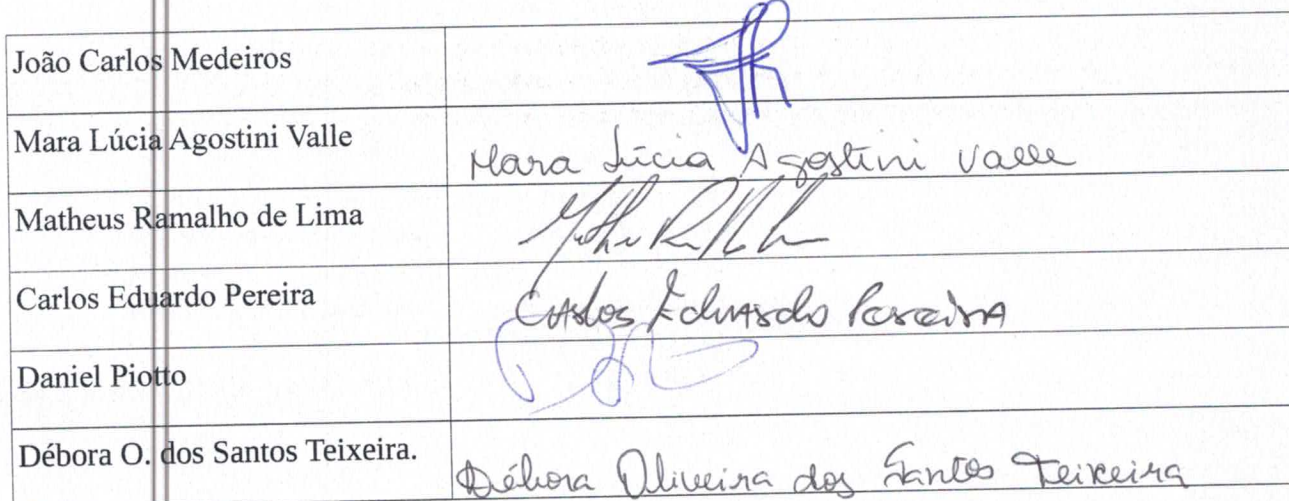 João Carlos Medeiros
Mara Lúcia Agostini Valle
Mara Lúcia Agostini Valle
Matheus Ramalho de Lima
Carlos Eduardo Pereira
Carlos Eduardo Pereira
Daniel Piotto
Débora O. dos Santos Teixeira.
Débora Oliveira dos Santos Teixeira